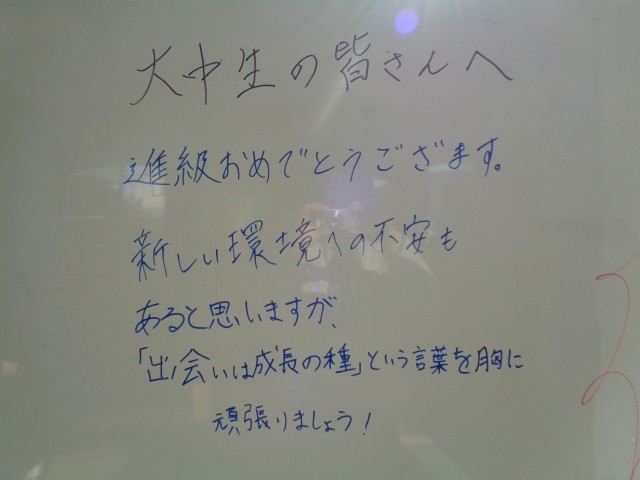 大中生の皆さんへ
進級おめでとうござます。
新しい環境への不安も
あると思いますが、
「出会いは成長の種」という言葉を胸に
頑張りましょう!